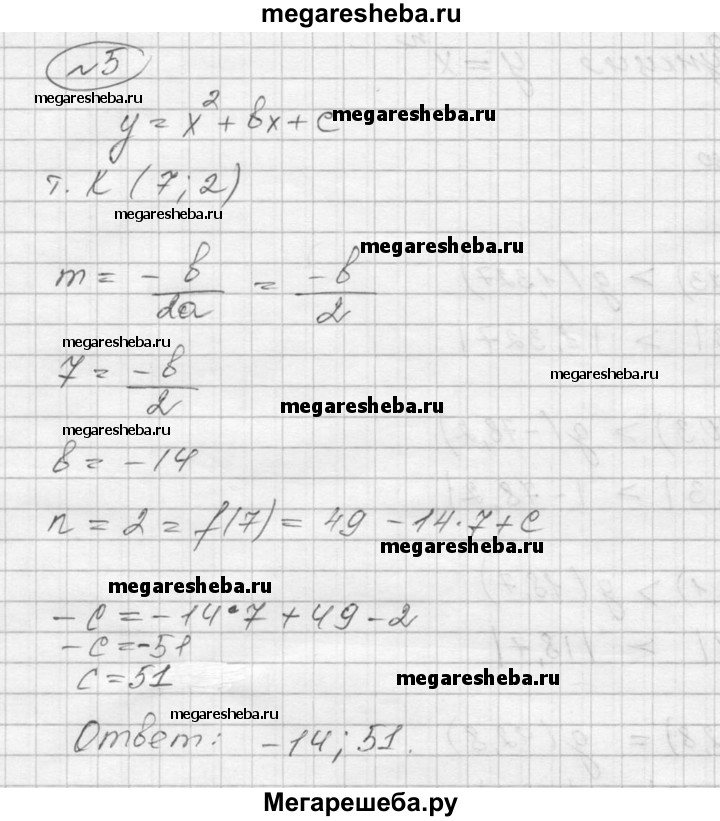 megaresheba.ru
№5
megaresheba.ru
y = x² + bx + c megaresheba.ru
т. K (7; 2)
megaresheba.ru
megaresheba.ru
m = -b/2a = -b/2
megaresheba.ru
7 = -b/2
megaresheba.ru
megaresheba.ru
megaresheba.ru
b = -14
n = 2 = f(7) = 49 - 14·7 + c
megaresheba.ru
megaresheba.ru
-c = -14·7 + 49 - 2
-c = -51
c = 51
megaresheba.ru
megaresheba.ru
Ответ: -14; 51.
Мегарешеба.ру